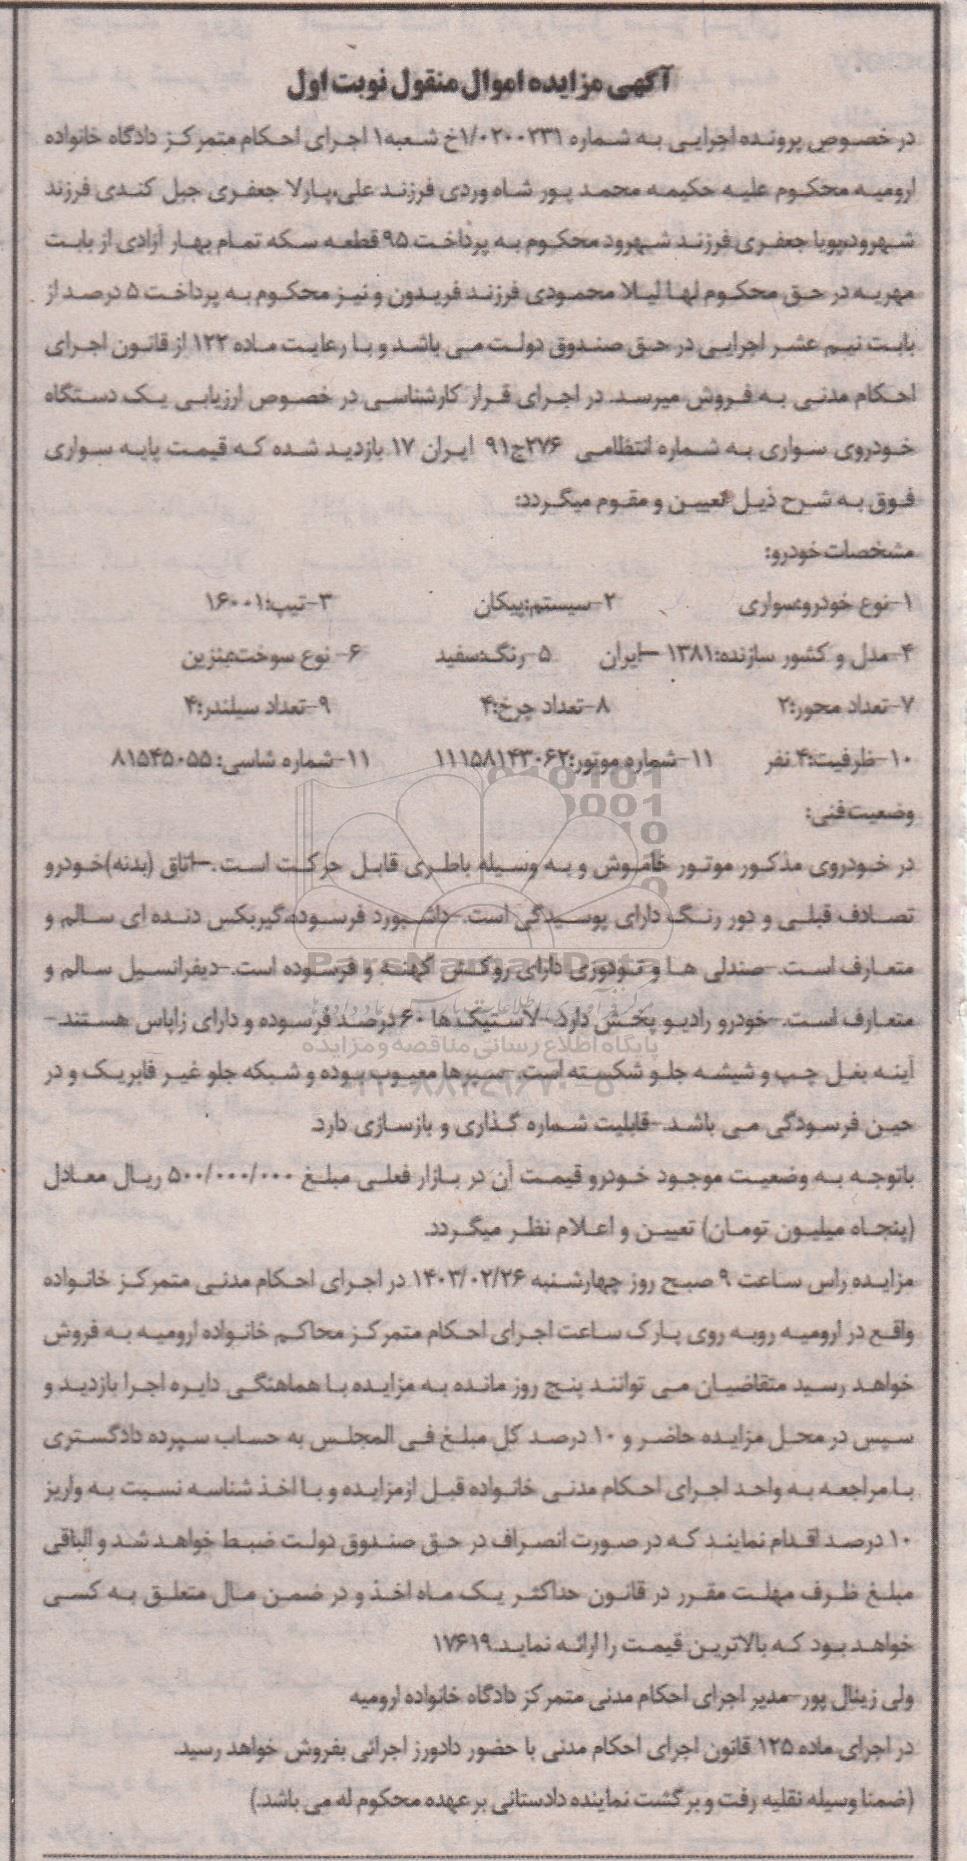 آگهی مزایده اموال منقول نوبت اول
در خصوص پرونده اجرایی به شماره ۱/۰۲۰۰۲۳۱خ شعبه۱ اجرای احکام متمرکز دادگاه خانواده
ارومیه محکوم علیه حکیمه محمد پور شاه وردی فرزند علی،پارلا جعفری جبل کندی فرزند
شهرود،پویا جعفری فرزند شهرود محکوم به پرداخت ۹۵ قطعه سکه تمام بهار آزادی از بابت
مهریه در حق محکوم لها لیلا محمودی فرزند فریدون و نیز محکوم به پرداخت ۵ درصد از
بابت نیم عشر اجرایی در حق صندوق دولت می باشد و با رعایت ماده ۱۲۲ از قانون اجرای
احکام مدنی به فروش میرسد. در اجرای قرار کارشناسی در خصوص ارزیابی یک دستگاه
خودروی سواری به شماره انتظامی ۲۷۶ج۹۱ ایران ۱۷ بازدید شده که قیمت پایه سواری
فوق به شرح ذیل تعیین و مقوم میگردد:
مشخصات خودرو:
۱-نوع خودرو:سواری ۲-سیستم:پیکان ۳-تیپ:۱۶۰۰۱
۴-مدل و کشور سازنده:۱۳۸۱ -ایران ۵-رنگ:سفید ۶- نوع سوخت:بنزین
۷-تعداد محور:۲ ۸-تعداد چرخ:۴ ۹-تعداد سیلندر:۴
۱۰-ظرفیت:۴ نفر ۱۱-شماره موتور:۱۱۱۵۸۱۴۳۰۶۲ ۱۱-شماره شاسی: ۸۱۵۴۵۰۵۵
وضعیت فنی:
در خودروی مذکور موتور خاموش و به وسیله باطری قابل حرکت است.-اتاق (بدنه)خودرو
تصادف قبلی و دور رنگ دارای پوسیدگی است.-داشبورد فرسوده،گیربکس دنده ای سالم و
متعارف است.-صندلی ها و تودوزی دارای روکش کهنه و فرسوده است.-دیفرانسیل سالم و
متعارف است.-خودرو رادیو پخش دارد.-لاستیک ها ۶۰ درصد فرسوده و دارای زاپاس هستند.-
آینه بغل چپ و شیشه جلو شکسته است.-سپرها معیوب بوده و شبکه جلو غیر فابریک و در
حین فرسودگی می باشد.-قابلیت شماره گذاری و بازسازی دارد.
باتوجه به وضعیت موجود خودرو قیمت آن در بازار فعلی مبلغ ۵۰۰/۰۰۰/۰۰۰ ریال معادل
(پنجاه میلیون تومان) تعیین و اعلام نظر میگردد.
مزایده راس ساعت ۹ صبح روز چهارشنبه ۱۴۰۳/۰۲/۲۶ در اجرای احکام مدنی متمرکز خانواده
واقع در ارومیه روبه روی پارک ساعت اجرای احکام متمرکز محاکم خانواده ارومیه به فروش
خواهد رسید متقاضیان می توانند پنج روز مانده به مزایده با هماهنگی دایره اجرا بازدید و
سپس در محل مزایده حاضر و ۱۰ درصد کل مبلغ فی المجلس به حساب سپرده دادگستری
با مراجعه به واحد اجرای احکام مدنی خانواده قبل ازمزایده و با اخذ شناسه نسبت به واریز
۱۰ درصد اقدام نمایند که در صورت انصراف در حق صندوق دولت ضبط خواهد شد و الباقی
مبلغ ظرف مهلت مقرر در قانون حداکثر یک ماه اخذ و در ضمن مال متعلق به کسی
خواهد بود که بالاترین قیمت را ارائه نماید.۱۷۶۱۹
ولی زینال پور-مدیر اجرای احکام مدنی متمرکز دادگاه خانواده ارومیه
در اجرای ماده ۱۲۵ قانون اجرای احکام مدنی با حضور دادورز اجرائی بفروش خواهد رسید.
(ضمنا وسیله نقلیه رفت و برگشت نماینده دادستانی بر عهده محکوم له می باشد.)
ParsNamadData
پایگاه اطلاع رسانی مناقصه و مزایده